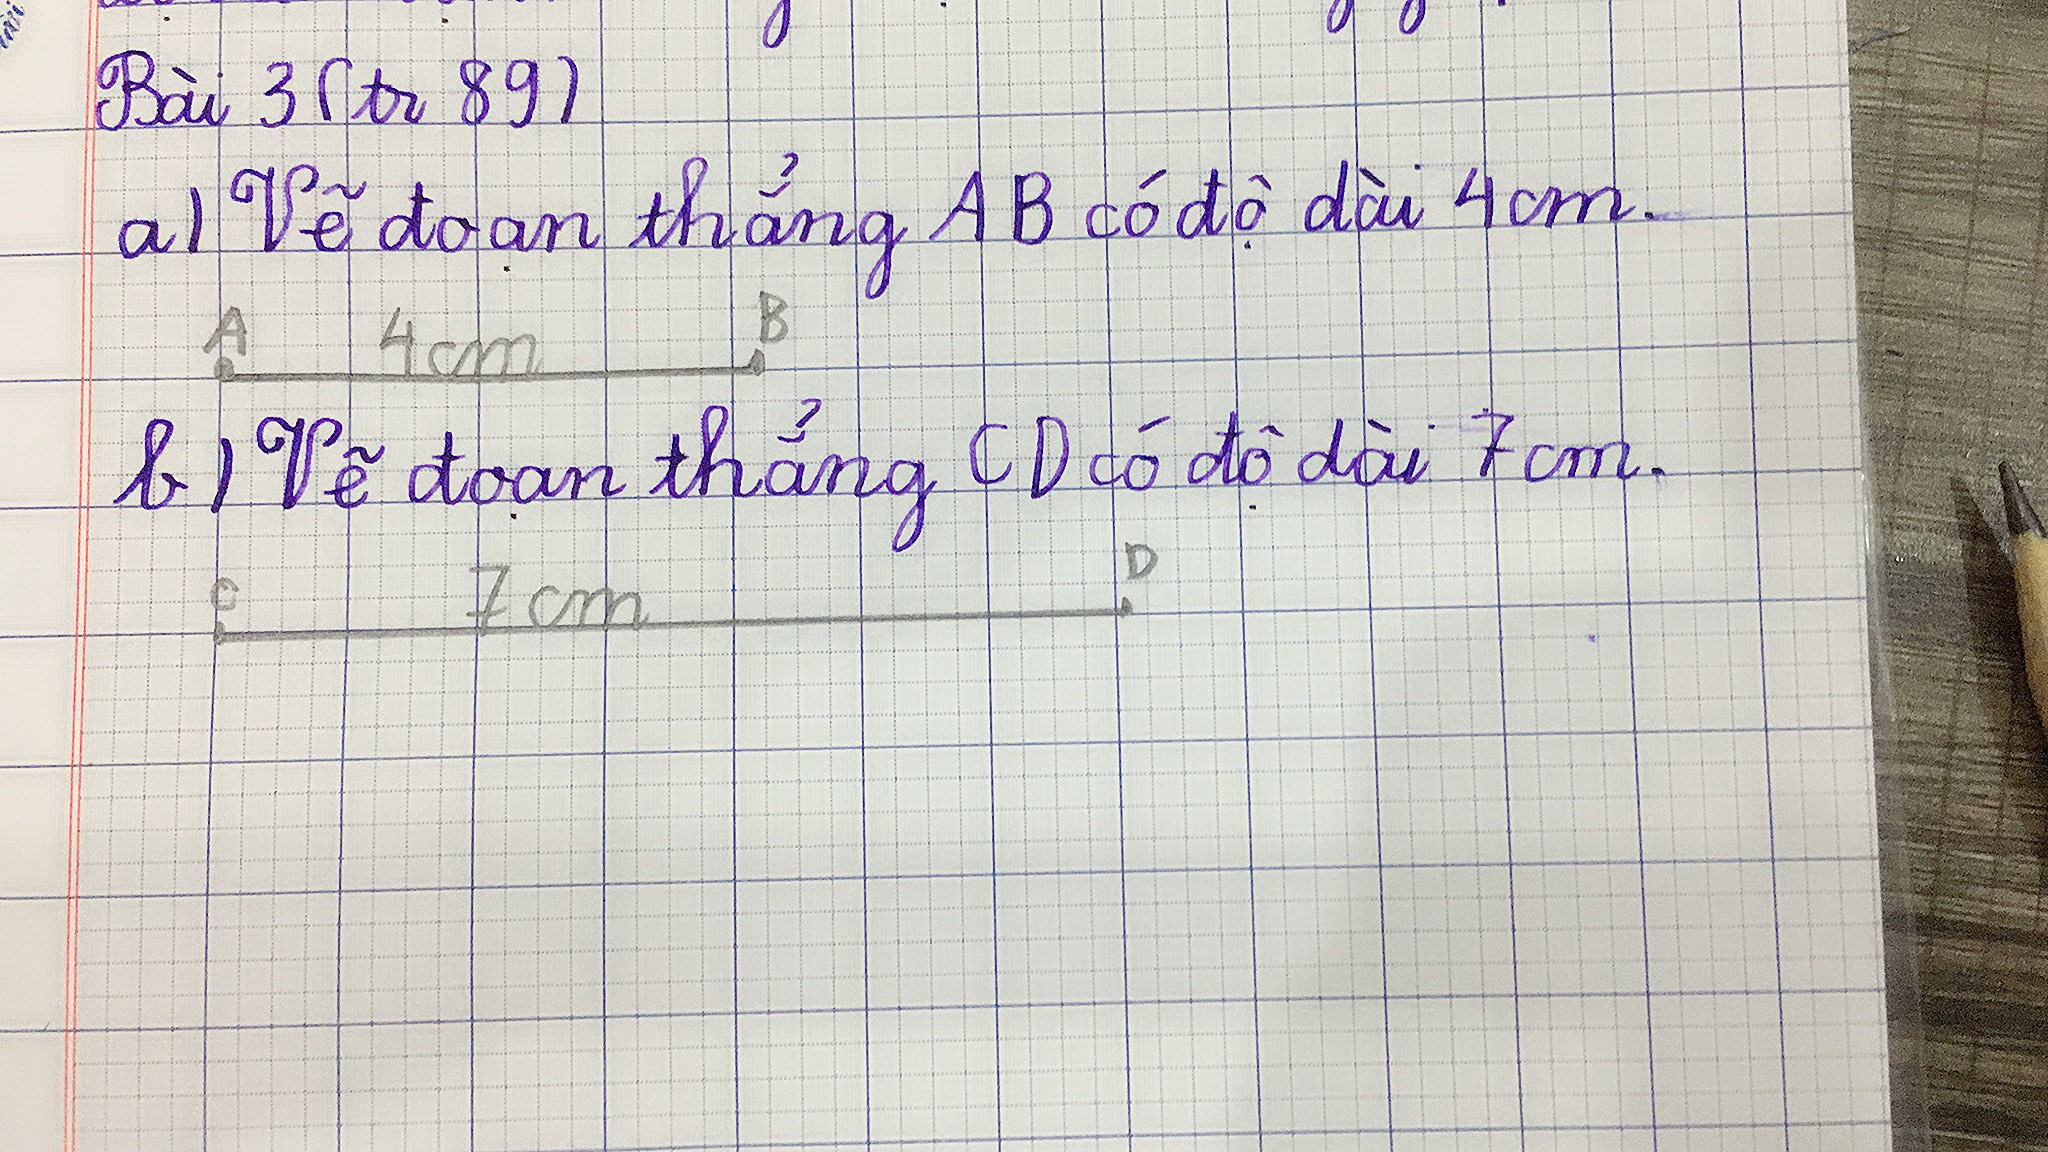 Bài 3 (tr 89)
a) Vẽ đoạn thẳng AB có độ dài 4cm.
A 4cm B
b) Vẽ đoạn thẳng CD có độ dài 7cm.
C 7cm D